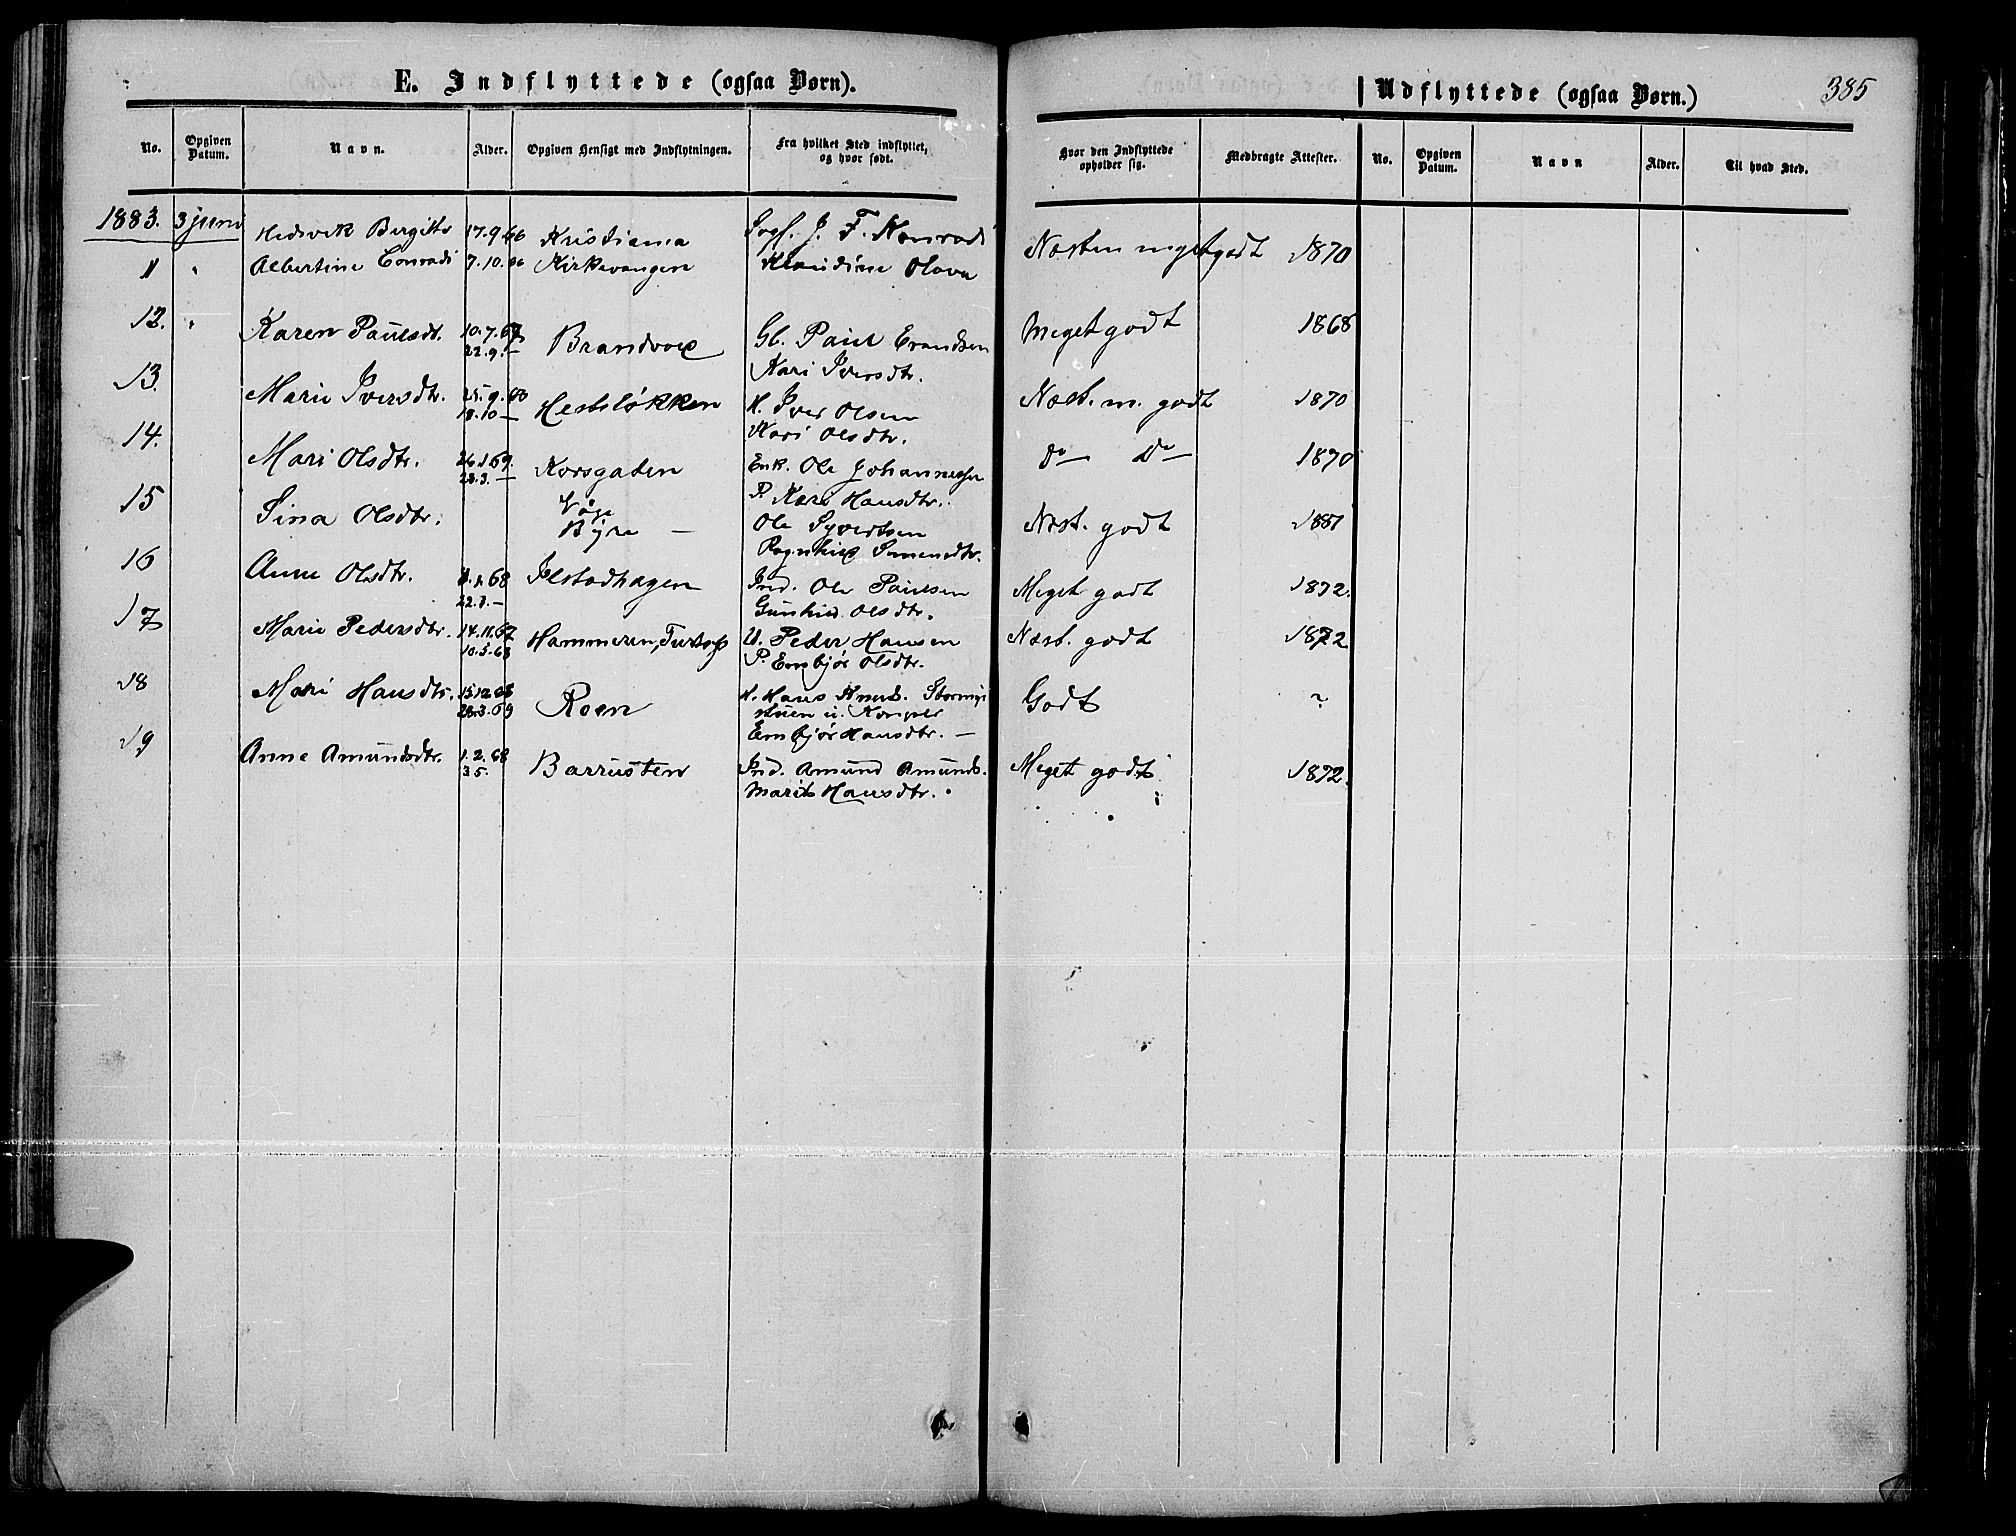 E. Indflyttede (ogsaa Børn).
Udflyttede (ogsaa Børn.)
385
No. Opgiven Datum. Navn. Alder. Opgiven Hensigt med Indflytningen. Fra hvilket Sted indflyttet, og hvor født. Hvor den Indflyttede opholder sig. Medbragte Attester. No. Opgiven Datum. Navn Alder. Til hvad Sted.
1883. 3 juni Hedevik Birgitte 17.9.66 Kristiania Sogf. J. F. Konradi
11 " Albertine Conradi 7.10.66 Kirkevangen Klaudine Olava Næsten meget godt 1870
12. " Karen Paulsdt. 10.7.67 Brandvoll Gl. Paul Erandsen Meget godt 1868
22.9.— Kari Iversdtr.
13. Marie Iversdtr. 25.9. Hesteløkken H. Iver Olsen Næst. m. godt 1870
18.10— Kari Olsdtr.
14. Mari Olsdtr. 26.1.69. Korsgaden Enk. Ole Johannessen Do— Do— 1870
28.3.— P. Kari Hansdtr.
15 Sina Olsdtr. Våge
Byre — Ole Syvertsen Næst. godt 1881
Ragnhild Simensdtr.
16 Anne Olsdtr. 1.68 Ilstadhagen Ind. Ole Paulsen Meget godt 1872.
22.3.— Gunhild Olsdtr.
17 Marie Pedersdtr. 14.11.67 Hammeren, U. Peder Hansen Næst. godt 1872
10.5.68 P. Embjør Olsdtr.
18 Mari Hansdtr. 15.12.68 Roen H. Hans Knuds. Godt ?
28.3.69 stuen u.
Embjør Hansdtr. —
19 Anne Amundsdtr. 1.2.68 Barrusten Ind. Amund Amunds. Meget godt 1872.
3.5. Marit Hansdtr.